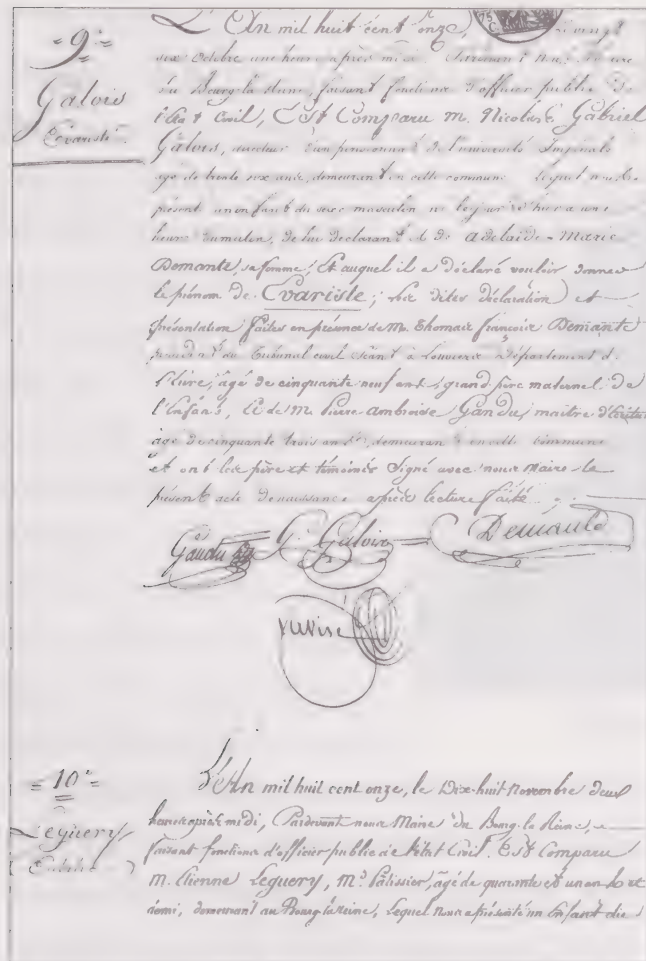 9e
Galois
Evariste
L'An mil huit cent onze, le vingt
six Octobre une heure après midi Pardevant Nous Maire
du Bourg-la Reine, faisant fonctions d'officier public de
l'État Civil, Est Comparu M. Nicolas Gabriel
Galois, directeur d'un pensionnat de l'université Impériale
agé de trente six ans, demeurant en cette commune lequel nous a
présenté un enfant du sexe masculin né le jour d'hier a une
heure du matin, de lui declarant et de adelaïde-Marie
Demante, sa femme, Et auquel il a déclaré vouloir donner
le prénom de Evariste; les dites déclaration et
présentation faites en présence de M. Thomas françois Demante
président du Tribunal civil séant à Louviers Département de
l'Eure, âgé de cinquante neuf ans, grand père maternel de
l'Enfant, Et de M. Pierre ambroise Gandu, maître d'Ecriture
agé de cinquante trois ans, demeurant en cette commune
et ont les père et témoins Signé avec nous Maire le
présent acte de naissance après lecture faite.
Gandu G. Galois Demante
10e
Leguery
L'An mil huit cent onze, le Dix-huit Novembre deux
heures après midi, Pardevant nous Maire du Bourg-la Reine,
faisant fonctions d'officier public de l'état Civil. Est Comparu
M. Etienne Leguery, Md Pâtissier, âgé de quarante et un ans et
demi, demeurant au Bourg la reine, Lequel nous a présenté un Enfant du